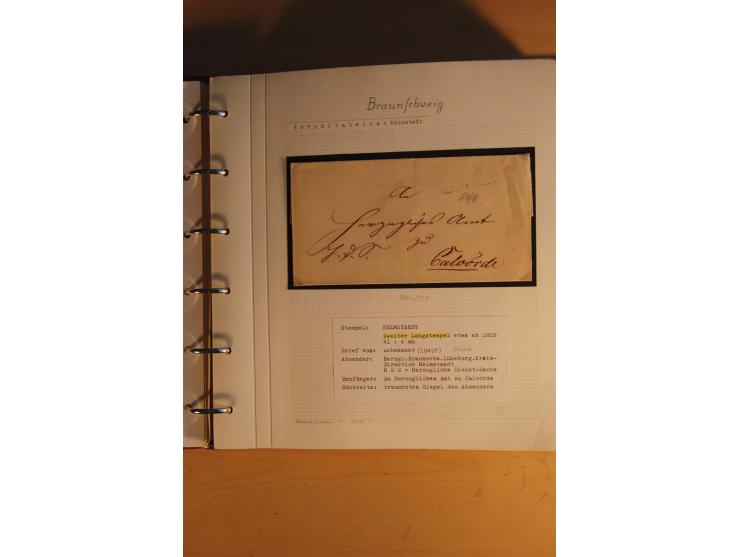 Braunschweig
Vorphilatelie: Helmstedt
An
Herzogliches Amt
zu
Calvörde
Stempel: HELMSTAEDT
Zweiter Langstempel etwa ab 1828
41 : 4 mm
Brief vom: unbekannt (1849?)
Absender: Herzgl.Braunschw.Lüneburg.Kreis-
Direction Helmstaedt
H D S = Herzogliche Dienst-Sache
Empfänger: An Herzogliches Amt zu Calvörde
Rückseite: braunrotes Siegel des Absenders